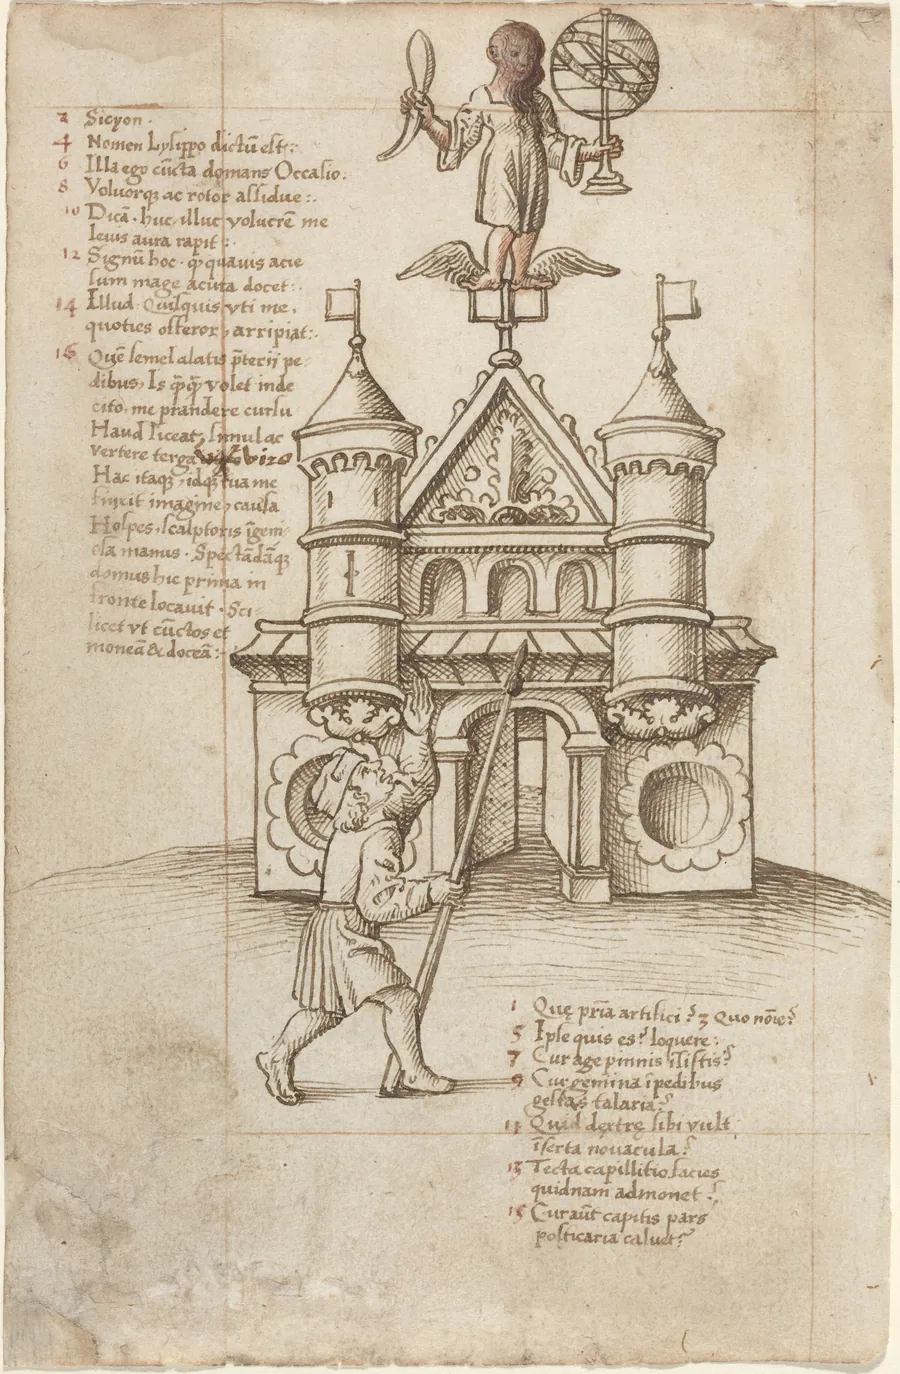 2 Sicyon.
4 Nomen Lysippo dictũ est:.
6 Illa ego cũcta domans Occasio.
8 Voluorq; ac rotor assidue:.
10 Dicã. huc, illuc volucrẽ me
leuis aura rapit:.
12 Signũ hoc. q quauis acie
sum mage acuta docet:.
14 Illud. Quisquis vti me,
quoties offeror, arripiat:.
16 Quẽ semel alatis pterij pe-
dibus, Is volet inde
cito, me prandere cursu
Haud liceat, simulac
vertere terga viro
Hac itaq;, idq; tua me
finxit imagine, causa
Hospes, scalptoris igem-
osa manus. Spectãdãq;
domus hic prima in
fronte locauit. Sci-
licet vt cũctos et
moneã & doceã:.
1 Quę pria artifici? 3 Quo nõie?
5 Ipse quis es? loquere:
7 Cur age pinnis ĩsistis?
9 Cur gemina ĩpedibus
gestas talaria?
11 Quid dextrę sibi vult
ĩserta nouacula?
13 Tecta capillitio facies
quidnam admonet?
15 Cur aũt capitis pars
posticaria caluet?